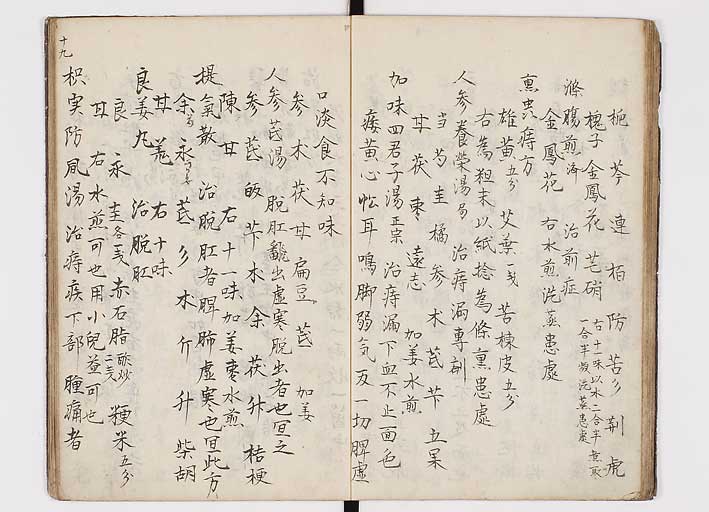 栀芩連栢防苦彡荆虎
槐子金鳳花芒硝
右十一味以水二合半煮取
一合半嗽洗蒸患處
滌腸煎 治前症
金鳳花 右水煎洗蒸患處
熏虫痔方
雄黄五分 艾葉一戔 苦楝皮五分
右為粗末以紙捻為條熏患處
人参養榮湯局 治痔漏專劑
当芍圭橘参术芪芐五果
甘茯棗遠志 加姜水煎
加味四君子湯正宗 治痔漏下血不止面色
痿黄心忪耳鳴脚弱気乏一切脾虚
口淡食不知味
参术茯甘扁豆芪 加姜
人参芪湯 脱肛翻出虚寒脱出者也宜之
参芪皈芐木余茯升桔梗
陳甘 右十一味加姜棗水煎
提氣散 治脱肛者脾肺虚寒也宜此方
余 永 芪彡木斤升柴胡
甘羗 右十味
良姜九 治脱肛
良永圭各戔 赤石脂 粳米五分
甘 右水煎可也用小兒益可也
枳实防風湯治痔疾下部腫痛者
十九